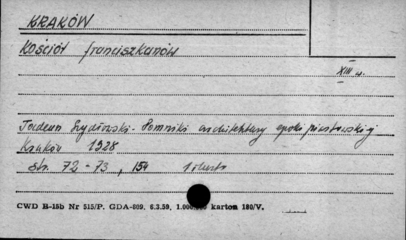 KRAKÓW
Kościół franciszkanów
XIII w.
Tadeusz Szydłowski - Pomniki architektury epoki piastowskiej
Kraków 1928
str. 72-73, 154
CWD B-15b Nr 515/P. GDA-809. 6.3.59. karton 180/V.